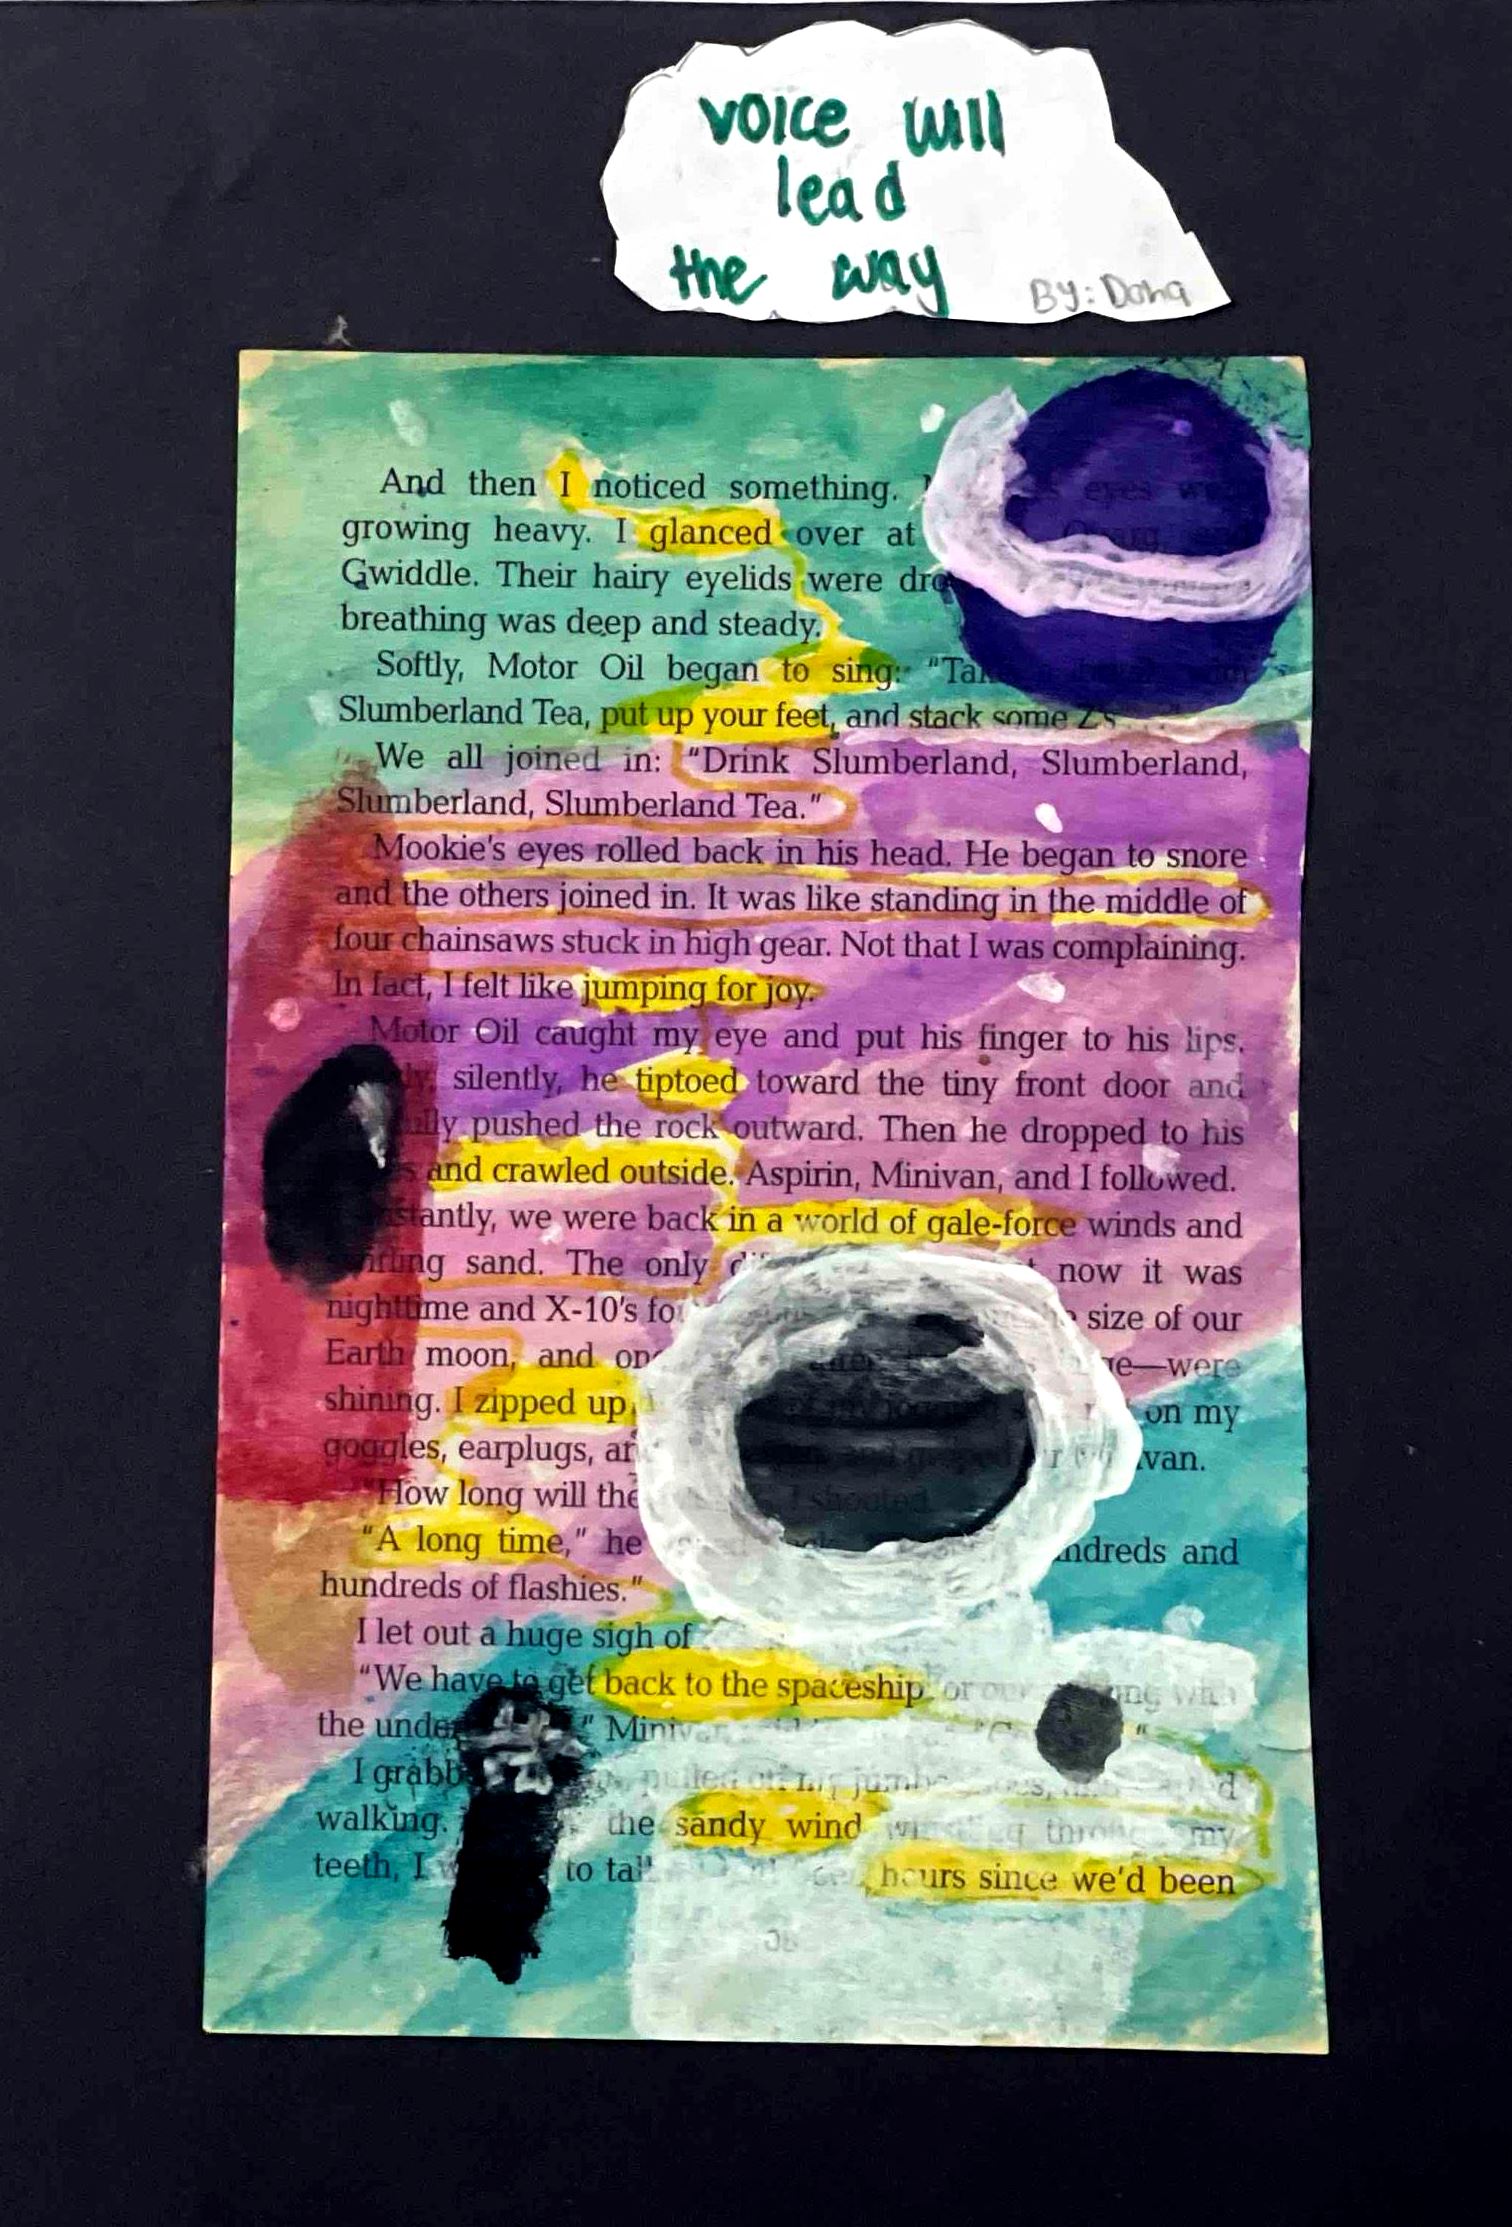 voice will
lead
the way
BY: Doha
And then I noticed something. eyes
growing heavy. I glanced over at
Gwiddle. Their hairy eyelids were
breathing was deep and steady.
Softly, Motor Oil began to sing: "
Slumberland Tea, put up your feet, and stack some Z's
We all joined in: "Drink Slumberland, Slumberland,
Slumberland, Slumberland Tea."
Mookie's eyes rolled back in his head. He began to snore
and the others joined in. It was like standing in the middle of
four chainsaws stuck in high gear. Not that I was complaining.
In fact, I felt like jumping for joy.
Motor Oil caught my eye and put his finger to his lips.
silently, he tiptoed toward the tiny front door and
pushed the rock outward. Then he dropped to his
and crawled outside. Aspirin, Minivan, and I followed.
we were back in a world of gale-force winds and
sand. The only now it was
nighttime and X-10's size of our
Earth moon, and were
shining. I zipped up on my
goggles, earplugs,
"How long will
"A long time," he and
hundreds of flashies."
I let out a huge sigh of
"We have to get back to the spaceship or
the
I
walking. the sandy wind my
teeth, I to hours since we'd been